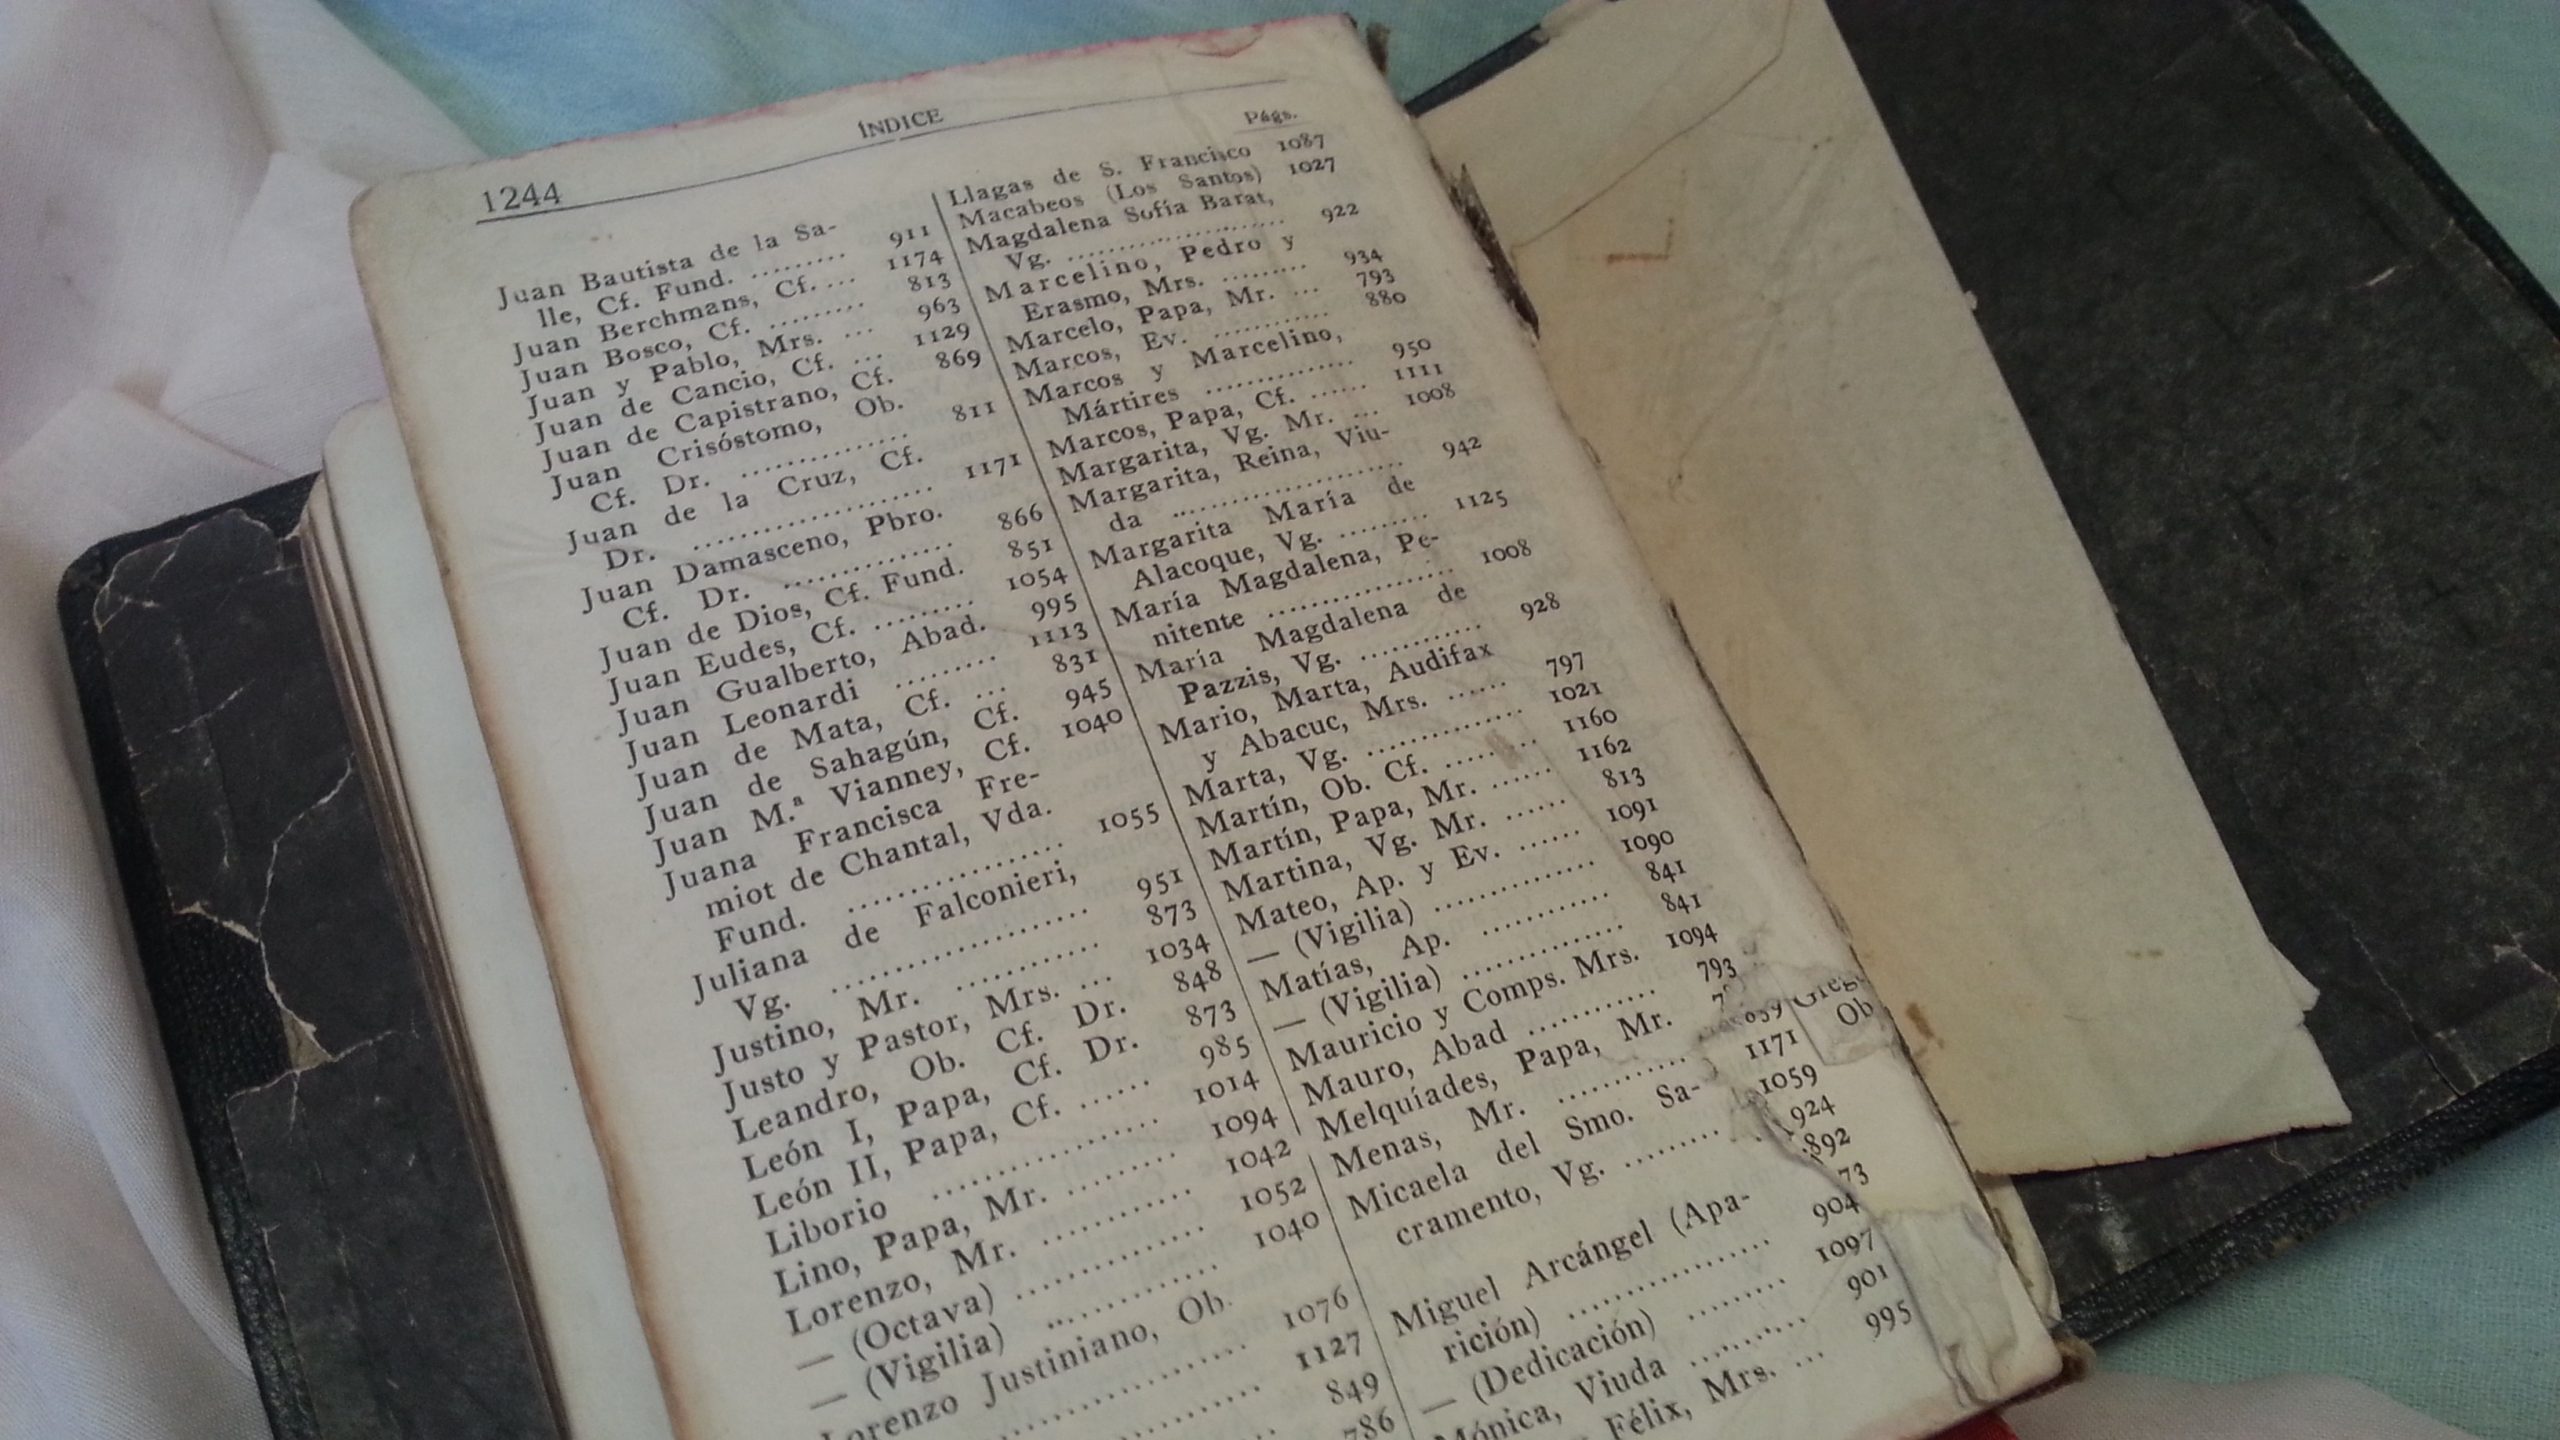 1244
ÍNDICE
Juan Bautista de la Sa-
lle, Cf. Fund. ......... 911
Juan Berchmans, Cf. ... 1174
Juan Bosco, Cf. ......... 813
Juan y Pablo, Mrs. ... 963
Juan de Cancio, Cf. ... 1129
Juan de Capistrano, Cf. 869
Juan Crisóstomo, Ob.
Cf. Dr. ............... 811
Juan de la Cruz, Cf.
Dr. ..................... 1171
Juan Damasceno, Pbro.
Cf. Dr. ............... 866
Juan de Dios, Cf. Fund. 851
Juan Eudes, Cf. ......... 1054
Juan Gualberto, Abad. 995
Juan Leonardi ......... 1113
Juan de Mata, Cf. ... 831
Juan de Sahagún, Cf. 945
Juan M.ª Vianney, Cf. 1040
Juana Francisca Fre-
miot de Chantal, Vda.
Fund. .................. 1055
Juliana de Falconieri,
Vg. ..................... 951
Justino, Mr. ............ 873
Justo y Pastor, Mrs. ... 1034
Leandro, Ob. Cf. Dr. 848
León I, Papa, Cf. Dr. 873
León II, Papa, Cf. ...... 985
Liborio .................. 1014
Lino, Papa, Mr. ......... 1094
Lorenzo, Mr. ............ 1042
— (Octava) ............... 1052
— (Vigilia) ............... 1040
Lorenzo Justiniano, Ob.
..................... 1076
1127
849
786
Págs.
Llagas de S. Francisco 1087
Macabeos (Los Santos) 1027
Magdalena Sofía Barat,
Vg. ..................... 922
Marcelino, Pedro y
Erasmo, Mrs. ......... 934
Marcelo, Papa, Mr. ... 793
Marcos, Ev. ............ 880
Marcos y Marcelino,
Mártires ............... 950
Marcos, Papa, Cf. ...... 1111
Margarita, Vg. Mr. ... 1008
Margarita, Reina, Viu-
da ..................... 942
Margarita María de
Alacoque, Vg. ......... 1125
María Magdalena, Pe-
nitente .................. 1008
María Magdalena de
Pazzis, Vg. ............ 928
Mario, Marta, Audifax
y Abacuc, Mrs. ...... 797
Marta, Vg. ............... 1021
Martín, Ob. Cf. ......... 1160
Martín, Papa, Mr. ...... 1162
Martina, Vg. Mr. ...... 813
Mateo, Ap. y Ev. ...... 1091
— (Vigilia) ............... 1090
Matías, Ap. ............ 841
— (Vigilia) ............... 841
Mauricio y Comps. Mrs. 1094
Mauro, Abad ............ 793
Melquíades, Papa, Mr.
Menas, Mr. ............ 1171
Micaela del Smo. Sa- 1059
cramento, Vg. ......... 924
892
73
Miguel Arcángel (Apa-
rición) .................. 904
— (Dedicación) ......... 1097
Mónica, Viuda ......... 901
Félix, Mrs. ... 995
Ob